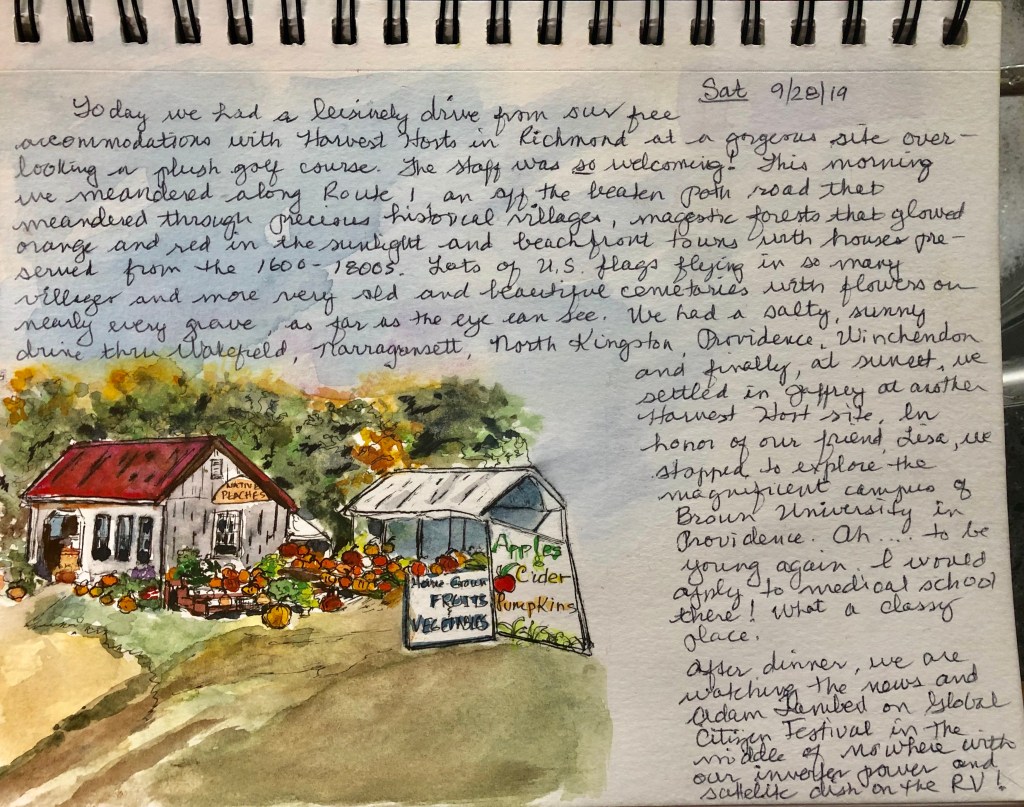 Sat 9/28/19
Today we had a leisurely drive from our free
accommodations with Harvest Hosts in Richmond at a gorgeous site over-
looking a plush golf course. The staff was so welcoming! This morning
we meandered along Route 1, an off the beaten path road that
meandered through precious historical villages, magestic forests that glowed
orange and red in the sunlight and beachfront towns with houses pre-
served from the 1600-1800s. Lots of U.S. flags flying in so many
villages and more very old and beautiful cemetaries with flowers on
nearly every grave, as far as the eye can see. We had a salty, sunny
drive thru Wakefield, Narragansett, North Kingston, Providence, Winchendon
and finally, at sunset, we
settled in Jaffrey at another
Harvest Host site. In
honor of our friend, Lisa, we
stopped to explore the
magnificent campus of
Brown University in
Providence. Ah .... to be
young again. I would
apply to medical school
there! What a classy
place.
After dinner, we are
watching the news and
Adam Lambert on Global
Citizen Festival in the
middle of nowhere with
our inverter power and
satellite dish on the RV!
NATIVE
PEACHES
Home Grown
FRUITS
VEGETABLES
Apples
Cider
Pumpkins